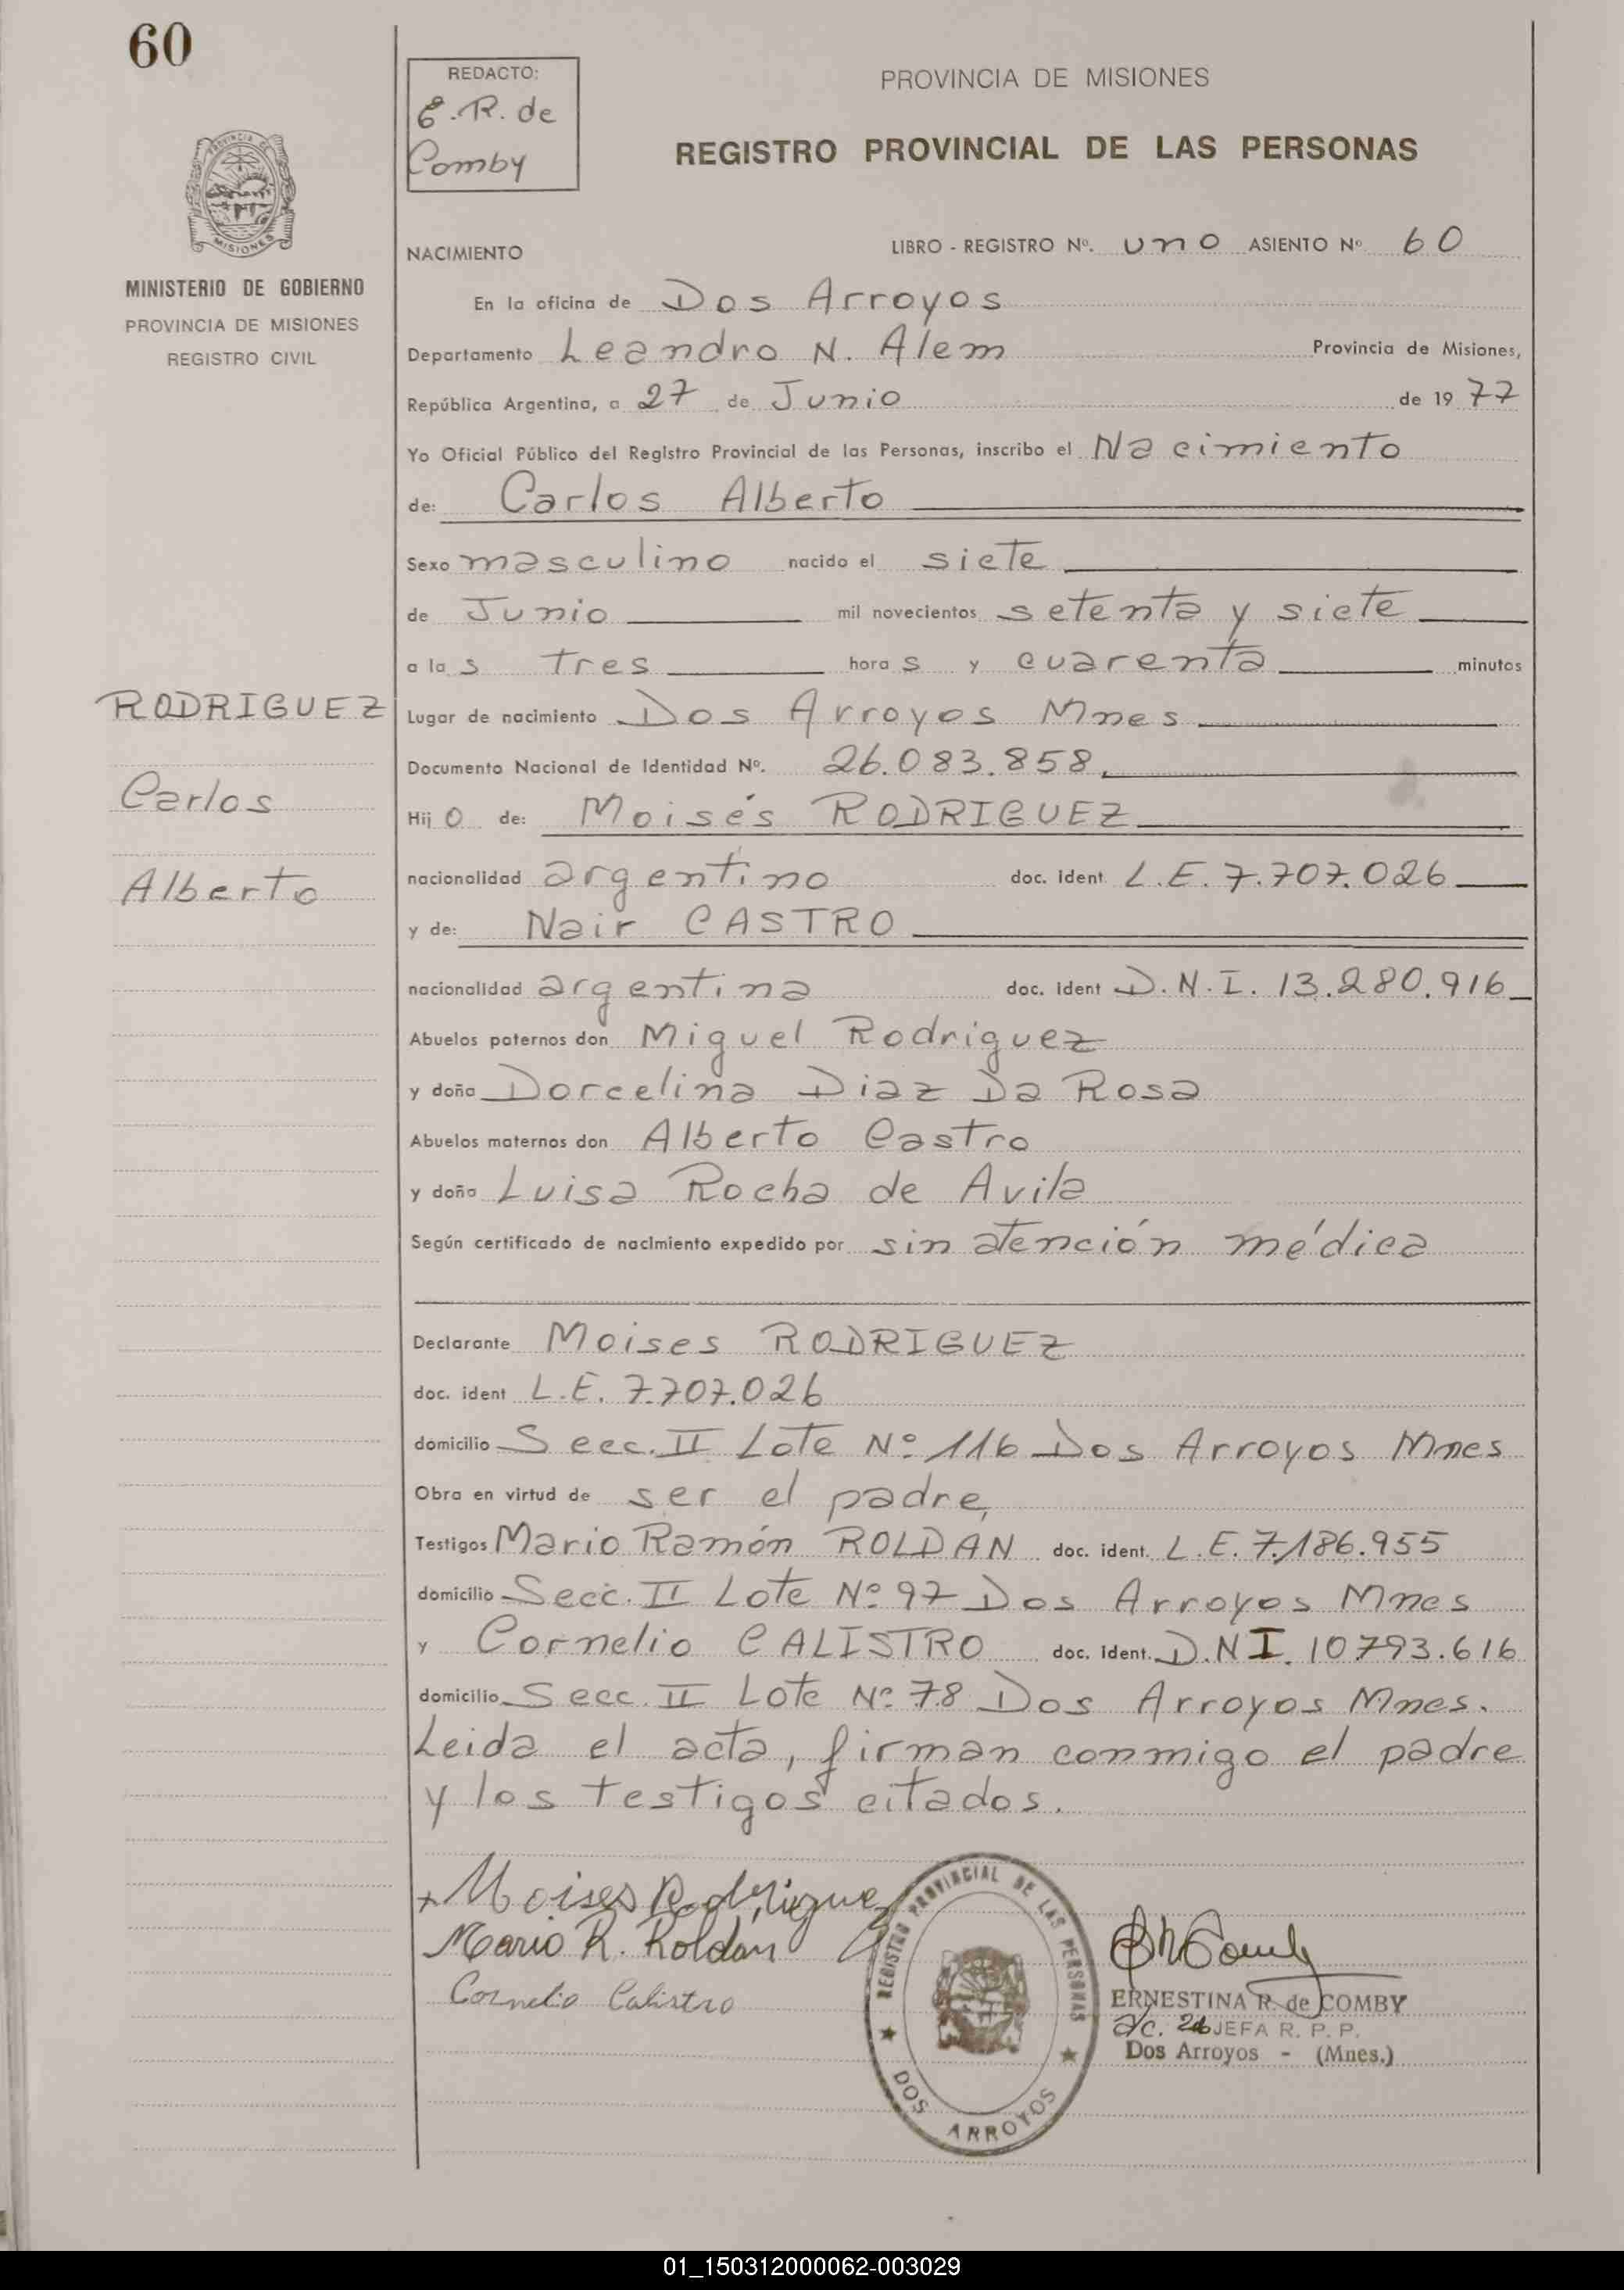 60
REDACTO:
E.R. de
Comby
PROVINCIA DE MISIONES
REGISTRO PROVINCIAL DE LAS PERSONAS
PROVINCIA DE
MISIONES
MINISTERIO DE GOBIERNO
PROVINCIA DE MISIONES
REGISTRO CIVIL
NACIMIENTO
LIBRO - REGISTRO Nº. uno ASIENTO Nº 60
En la oficina de Dos Arroyos
Departamento Leandro N. Alem Provincia de Misiones,
República Argentina, a 27 de Junio de 1977
Yo Oficial Público del Registro Provincial de las Personas, inscribo el Nacimiento
de: Carlos Alberto
Sexo masculino nacido el siete
de Junio mil novecientos setenta y siete
a las tres horas y cuarenta minutos
RODRIGUEZ
Carlos
Alberto
Lugar de nacimiento Dos Arroyos Mnes
Documento Nacional de Identidad Nº. 26.083.858,
Hijo de: Moisés RODRIGUEZ
nacionalidad argentino doc. ident L.E. 7.707.026
y de: Nair CASTRO
nacionalidad argentina doc. ident D.N.I. 13.280.916
Abuelos paternos don Miguel Rodriguez
y doña Dorcelina Diaz Da Rosa
Abuelos maternos don Alberto Castro
y doña Luisa Rocha de Avila
Según certificado de nacimiento expedido por sin atención médica
Declarante Moises RODRIGUEZ
doc. ident L.E. 7.707.026
domicilio Secc. II Lote Nº 116 Dos Arroyos Mnes
Obra en virtud de ser el padre,
Testigos Mario Ramón ROLDAN doc. ident. L.E. 7.186.955
domicilio Secc. II Lote Nº 97 Dos Arroyos Mnes
y Cornelio CALISTRO doc. ident. D.N.I. 10793.616
domicilio Secc. II Lote Nº 78 Dos Arroyos Mnes.
Leida el acta, firman conmigo el padre
y los testigos citados.
+ Moises Rodriguez
Mario R. Roldan
Cornelio Calistro
REGISTRO PROVINCIAL DE LAS PERSONAS
DOS ARROYOS
ERNESTINA R. de COMBY
a/c. JEFA R. P. P.
Dos Arroyos - (Mnes.)
01_150312000062-003029